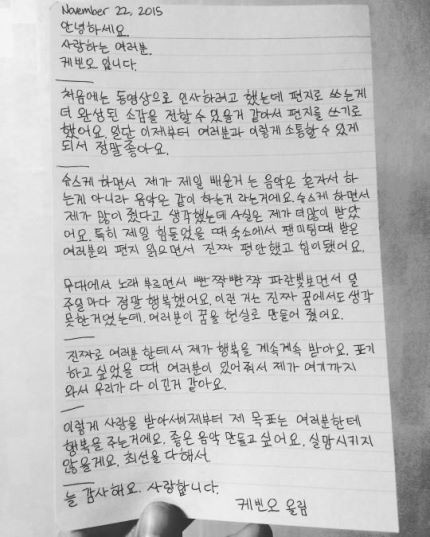 November 22, 2015
안녕하세요.
사랑하는 여러분.
케빈오 입니다.
처음에는 동영상으로 인사하려고 했는데 편지로 쓰는게
더 완성된 소감을 전할 수 있을거 같아서 편지를 쓰기로
했어요. 일단 이제부터 여러분과 이렇게 소통할 수 있게
되서 정말 좋아요.
슈스케 하면서 제가 제일 배운거는 음악은 혼자서 하
는게 아니라 음악은 같이 하는거 라는거에요. 슈스케 하면서
제가 많이 줬다고 생각했는데 사실은 제가 더 많이 받았
어요. 특히 제일 힘들었을 때 숙소에서 팬미팅때 받은
여러분의 편지 읽으면서 진짜 평안했고 힘이됐어요.
무대에서 노래 부르면서 빤짝빤짝 파란빛보면서 일
주일마다 정말 행복했어요. 이런 거는 진짜 꿈에서도 생각
못한거였는데. 여러분이 꿈을 현실로 만들어 줬어요.
진짜로 여러분 한테서 제가 행복을 계속계속 받아요. 포기
하고 싶었을 때 여러분이 있어줘서 제가 여기까지
와서 우리가 다 이긴거 같아요.
이렇게 사랑을 받아서 이제부터 제 목표는 여러분한테
행복을 주는거에요. 좋은 음악 만들고 싶어요. 실망시키지
않을게요. 최선을 다해서.
늘 감사해요. 사랑합니다.
케빈오 올림